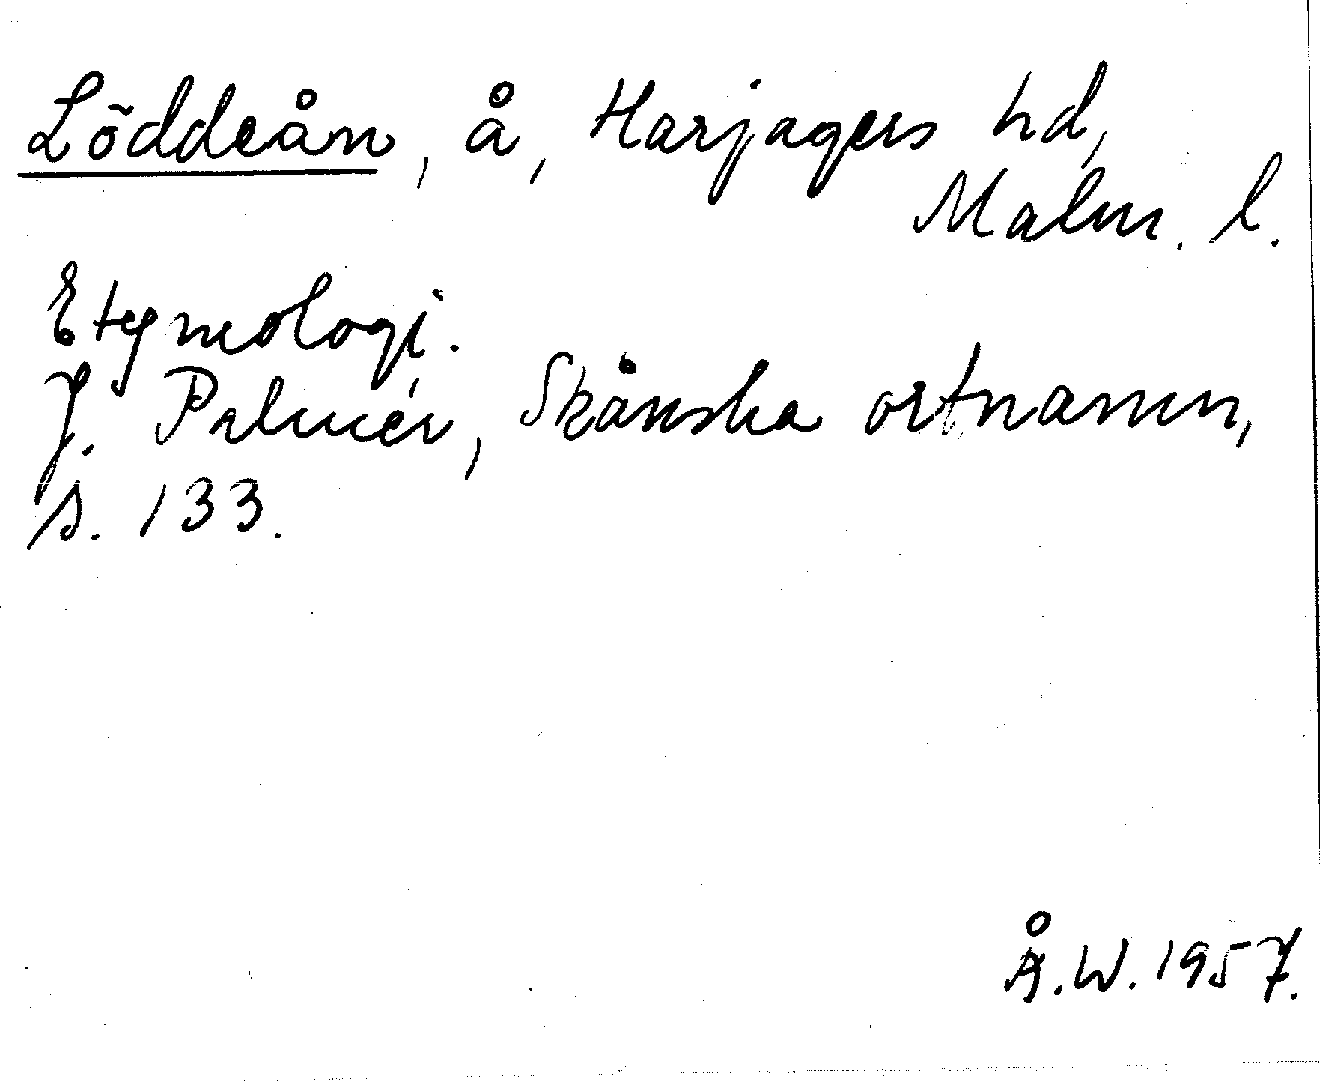 Löddeån, å, Harjagers hd,
Malm. l.
Etymologi.
J. Palmér, Skånska ortnamn,
s. 133.
Å.W. 1957.